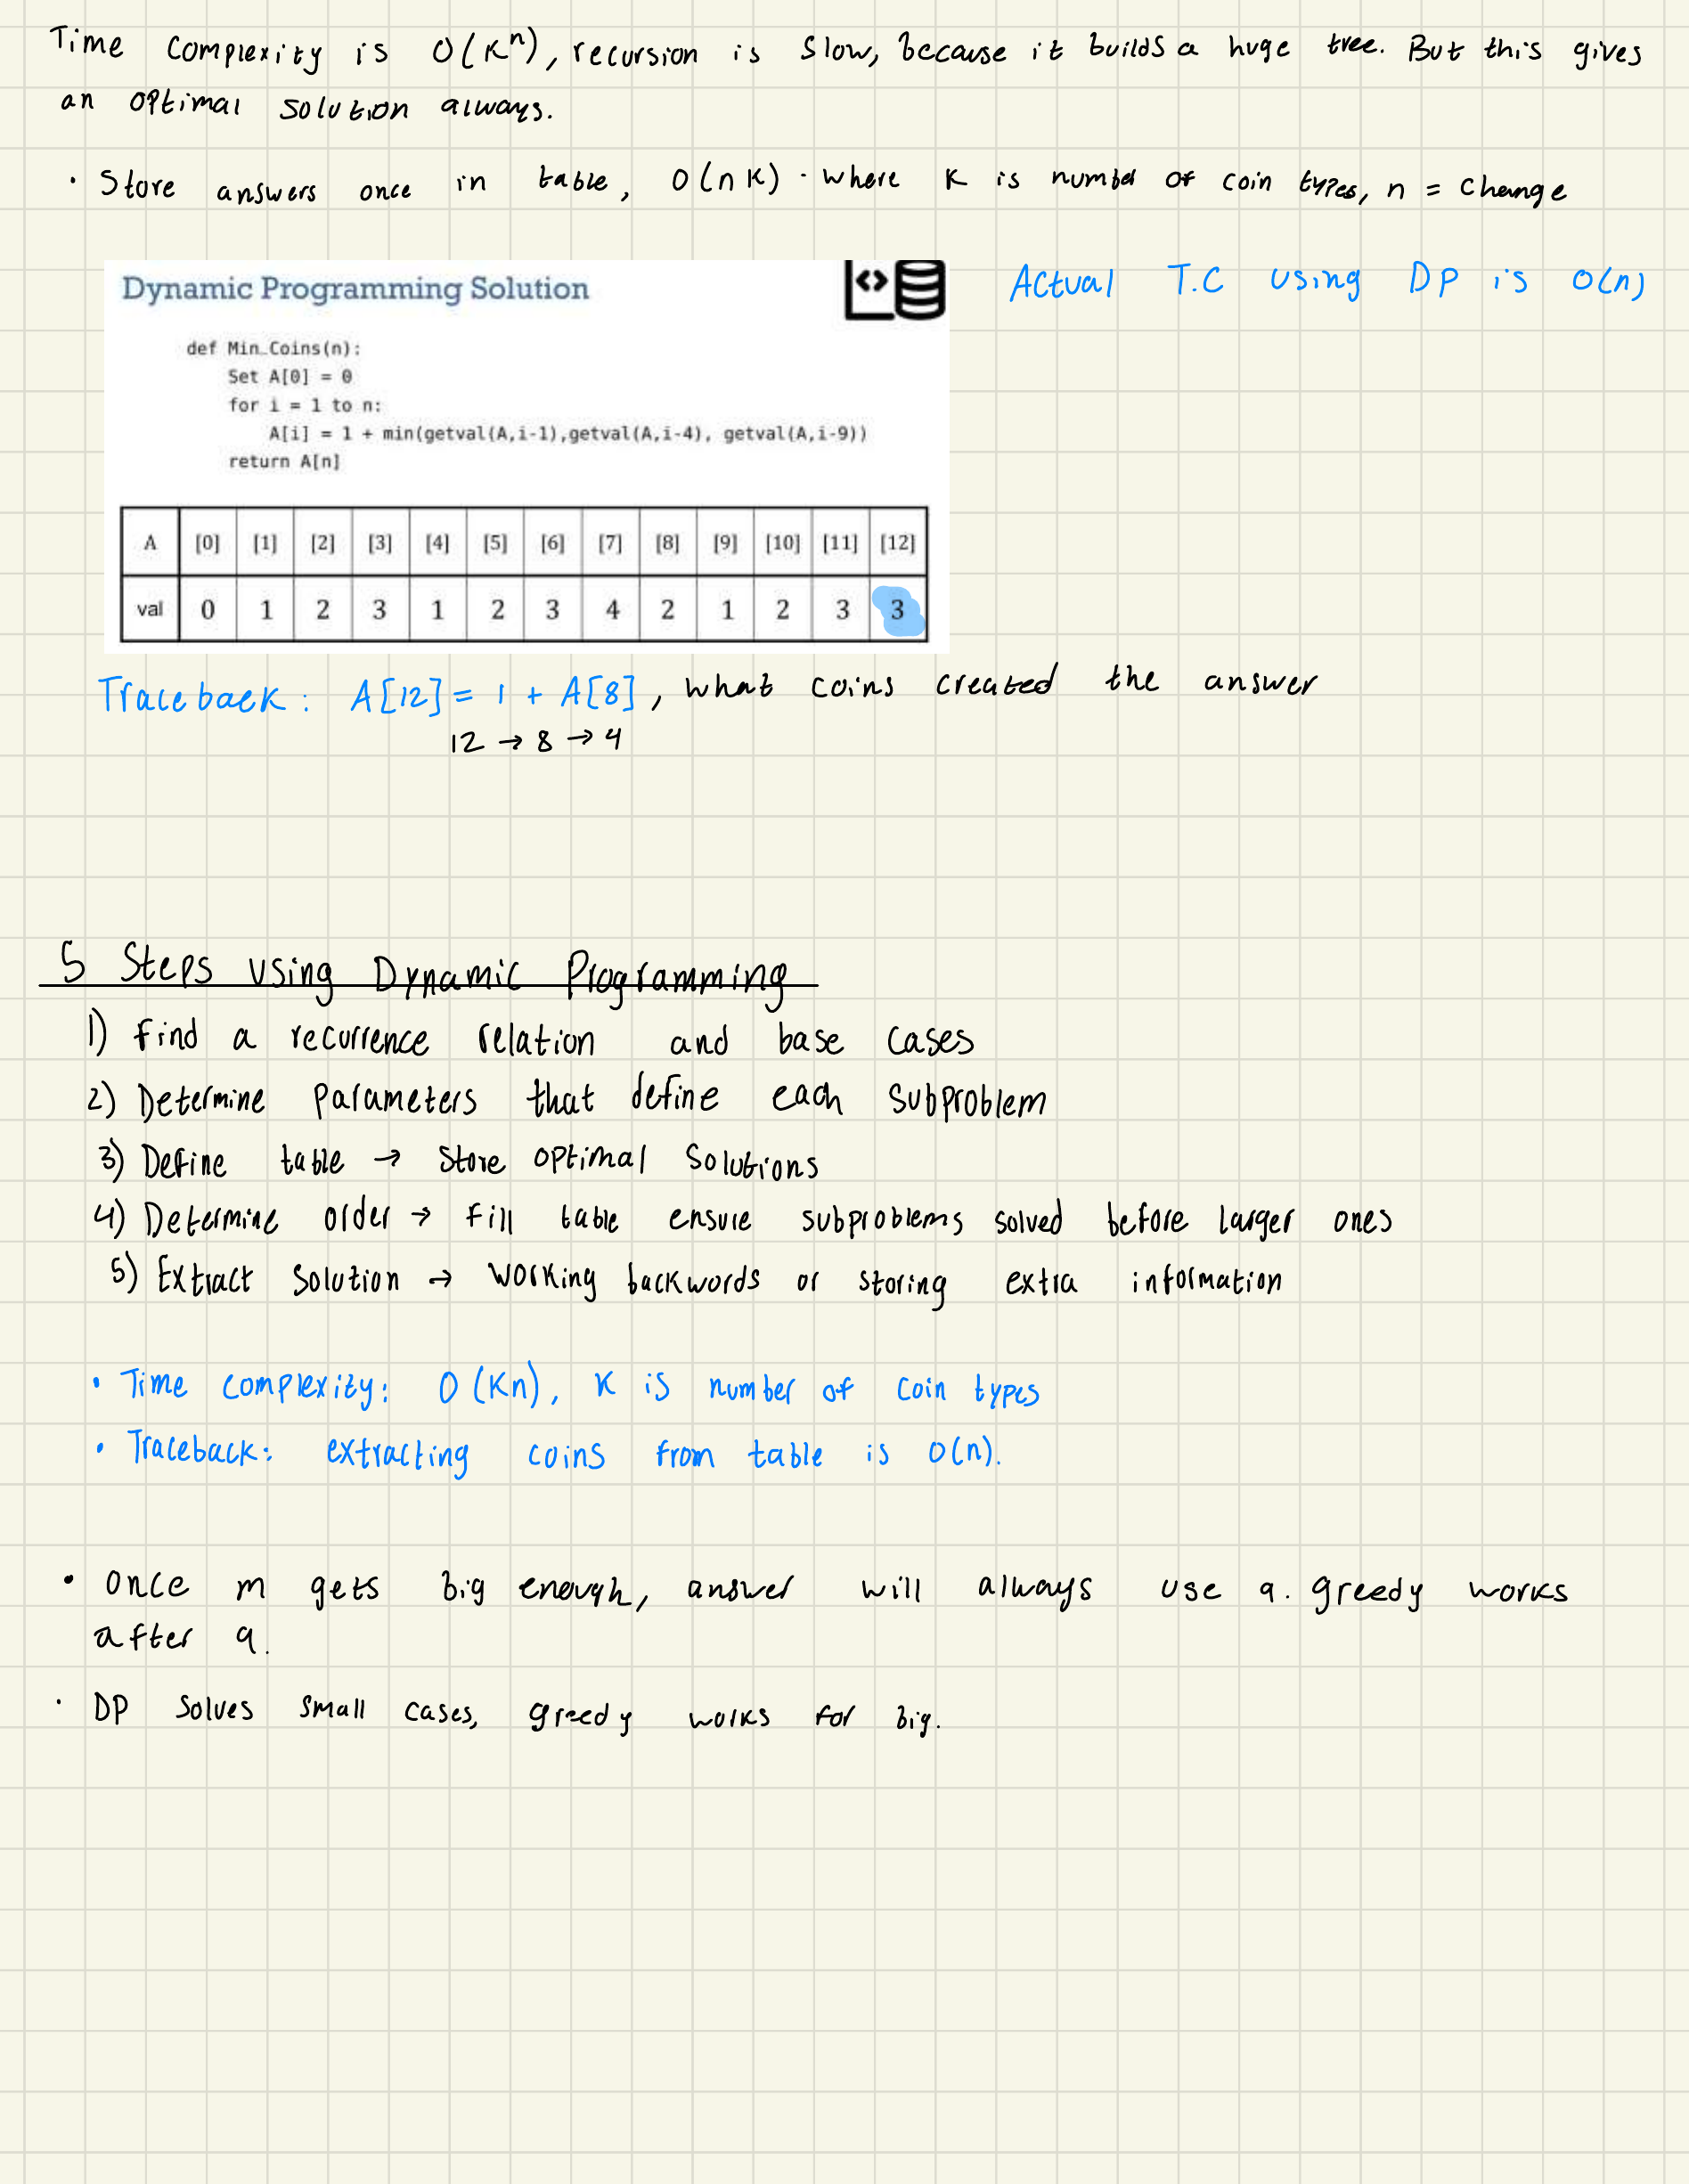 Time complexity is O(K^n), recursion is slow, because it builds a huge tree. But this gives
an optimal solution always.
· Store answers once in table, O(nK) · where K is number of coin types, n = change
Dynamic Programming Solution
<>
Actual T.C using DP is O(n)
def Min_Coins(n):
Set A[0] = 0
for i = 1 to n:
A[i] = 1 + min(getval(A,i-1),getval(A,i-4), getval(A,i-9))
return A[n]
A [0] [1] [2] [3] [4] [5] [6] [7] [8] [9] [10] [11] [12]
val 0 1 2 3 1 2 3 4 2 1 2 3 3
Traceback: A[12] = 1 + A[8], what coins created the answer
12 → 8 → 4
5 Steps using Dynamic Programming
1) find a recurrence relation and base cases
2) Determine parameters that define each subproblem
3) Define table → store optimal solutions
4) Determine order → fill table ensure subproblems solved before larger ones
5) Extract solution → working backwords or storing extra information
• Time complexity: O(Kn), K is number of coin types
• Traceback: extracting coins from table is O(n).
• once m gets big enough, answer will always use 9. greedy works
after 9.
· DP solves small cases, greedy works for big.